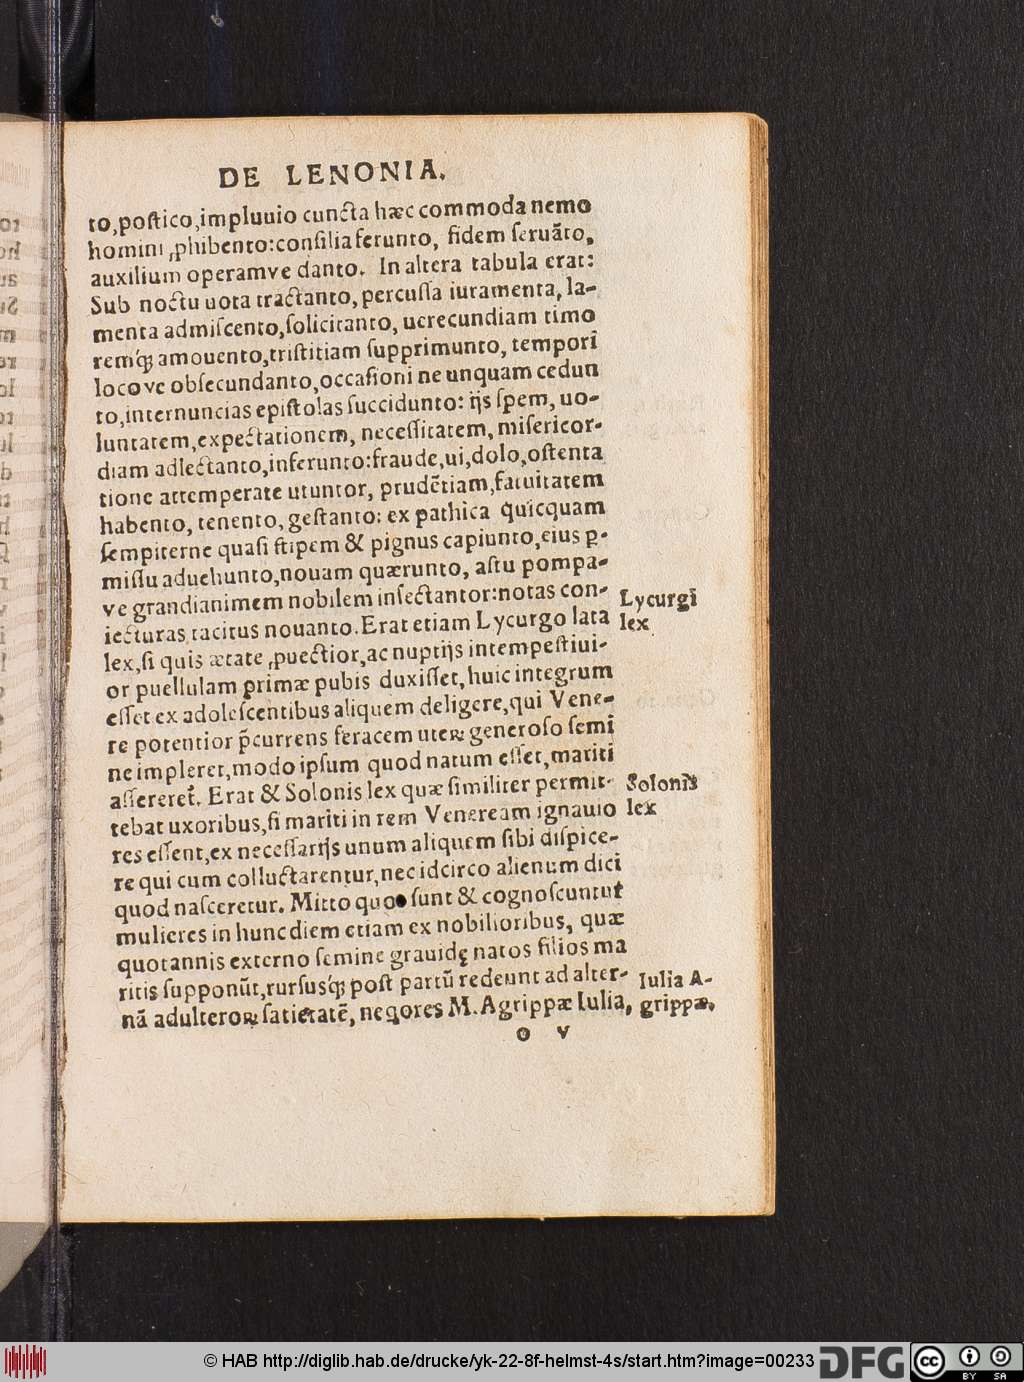 DE LENONIA.
to,postico,impluuio cuncta hæc commoda nemo
homini ꝓhibento:consilia ferunto, fidem seruãto,
auxilium operamve danto. In altera tabula erat:
Sub noctu uota tractanto, percussa iuramenta, la-
menta admiscento,solicitanto, uerecundiam timo
remq̃ amouento,tristitiam supprimunto, tempori
locove obsecundanto,occasioni ne unquam cedun
to,internuncias epistolas succidunto: ijs spem, uo-
luntatem,expectationem, necessitatem, misericor-
diam adlectanto,inferunto:fraude,ui,dolo,ostenta
tione attemperate utuntor, prudẽtiam,fatuitatem
habento, tenento, gestanto: ex pathica quicquam
sempiterne quasi stipem & pignus capiunto,eius ꝑ-
missu aduehunto,nouam quærunto, astu pompa-
ve grandianimem nobilem insectantor:notas con-
iecturas tacitus nouanto. Erat etiam Lycurgo lata
Lycurgi
lex
lex,si quis ætate ꝓuectior,ac nuptijs intempestiui-
or puellulam primæ pubis duxisset, huic integrum
esset ex adolescentibus aliquem deligere,qui Vene-
re potentior p̃currens feracem uterꝝ generoso semi
ne impleret,modo ipsum quod natum esset,mariti
assereret. Erat & Solonis lex quæ similiter permit-
Solonis
lex
tebat uxoribus,si mariti in rem Veneream ignauio
res essent,ex necessarijs unum aliquem sibi dispice-
re qui cum colluctarentur,nec idcirco alienum dici
quod nasceretur. Mitto quo sunt & cognoscuntur
mulieres in hunc diem etiam ex nobilioribus, quæ
quotannis externo semine grauidę natos filios ma
ritis supponũt,rursusq̃ post partũ redeunt ad alter-
nã adulteroꝝ satietatẽ, neqores M. Agrippæ Iulia,
Iulia A-
grippæ.
O V
© HAB http://diglib.hab.de/drucke/yk-22-8f-helmst-4s/start.htm?image=00233
DFG
cc
BY SA